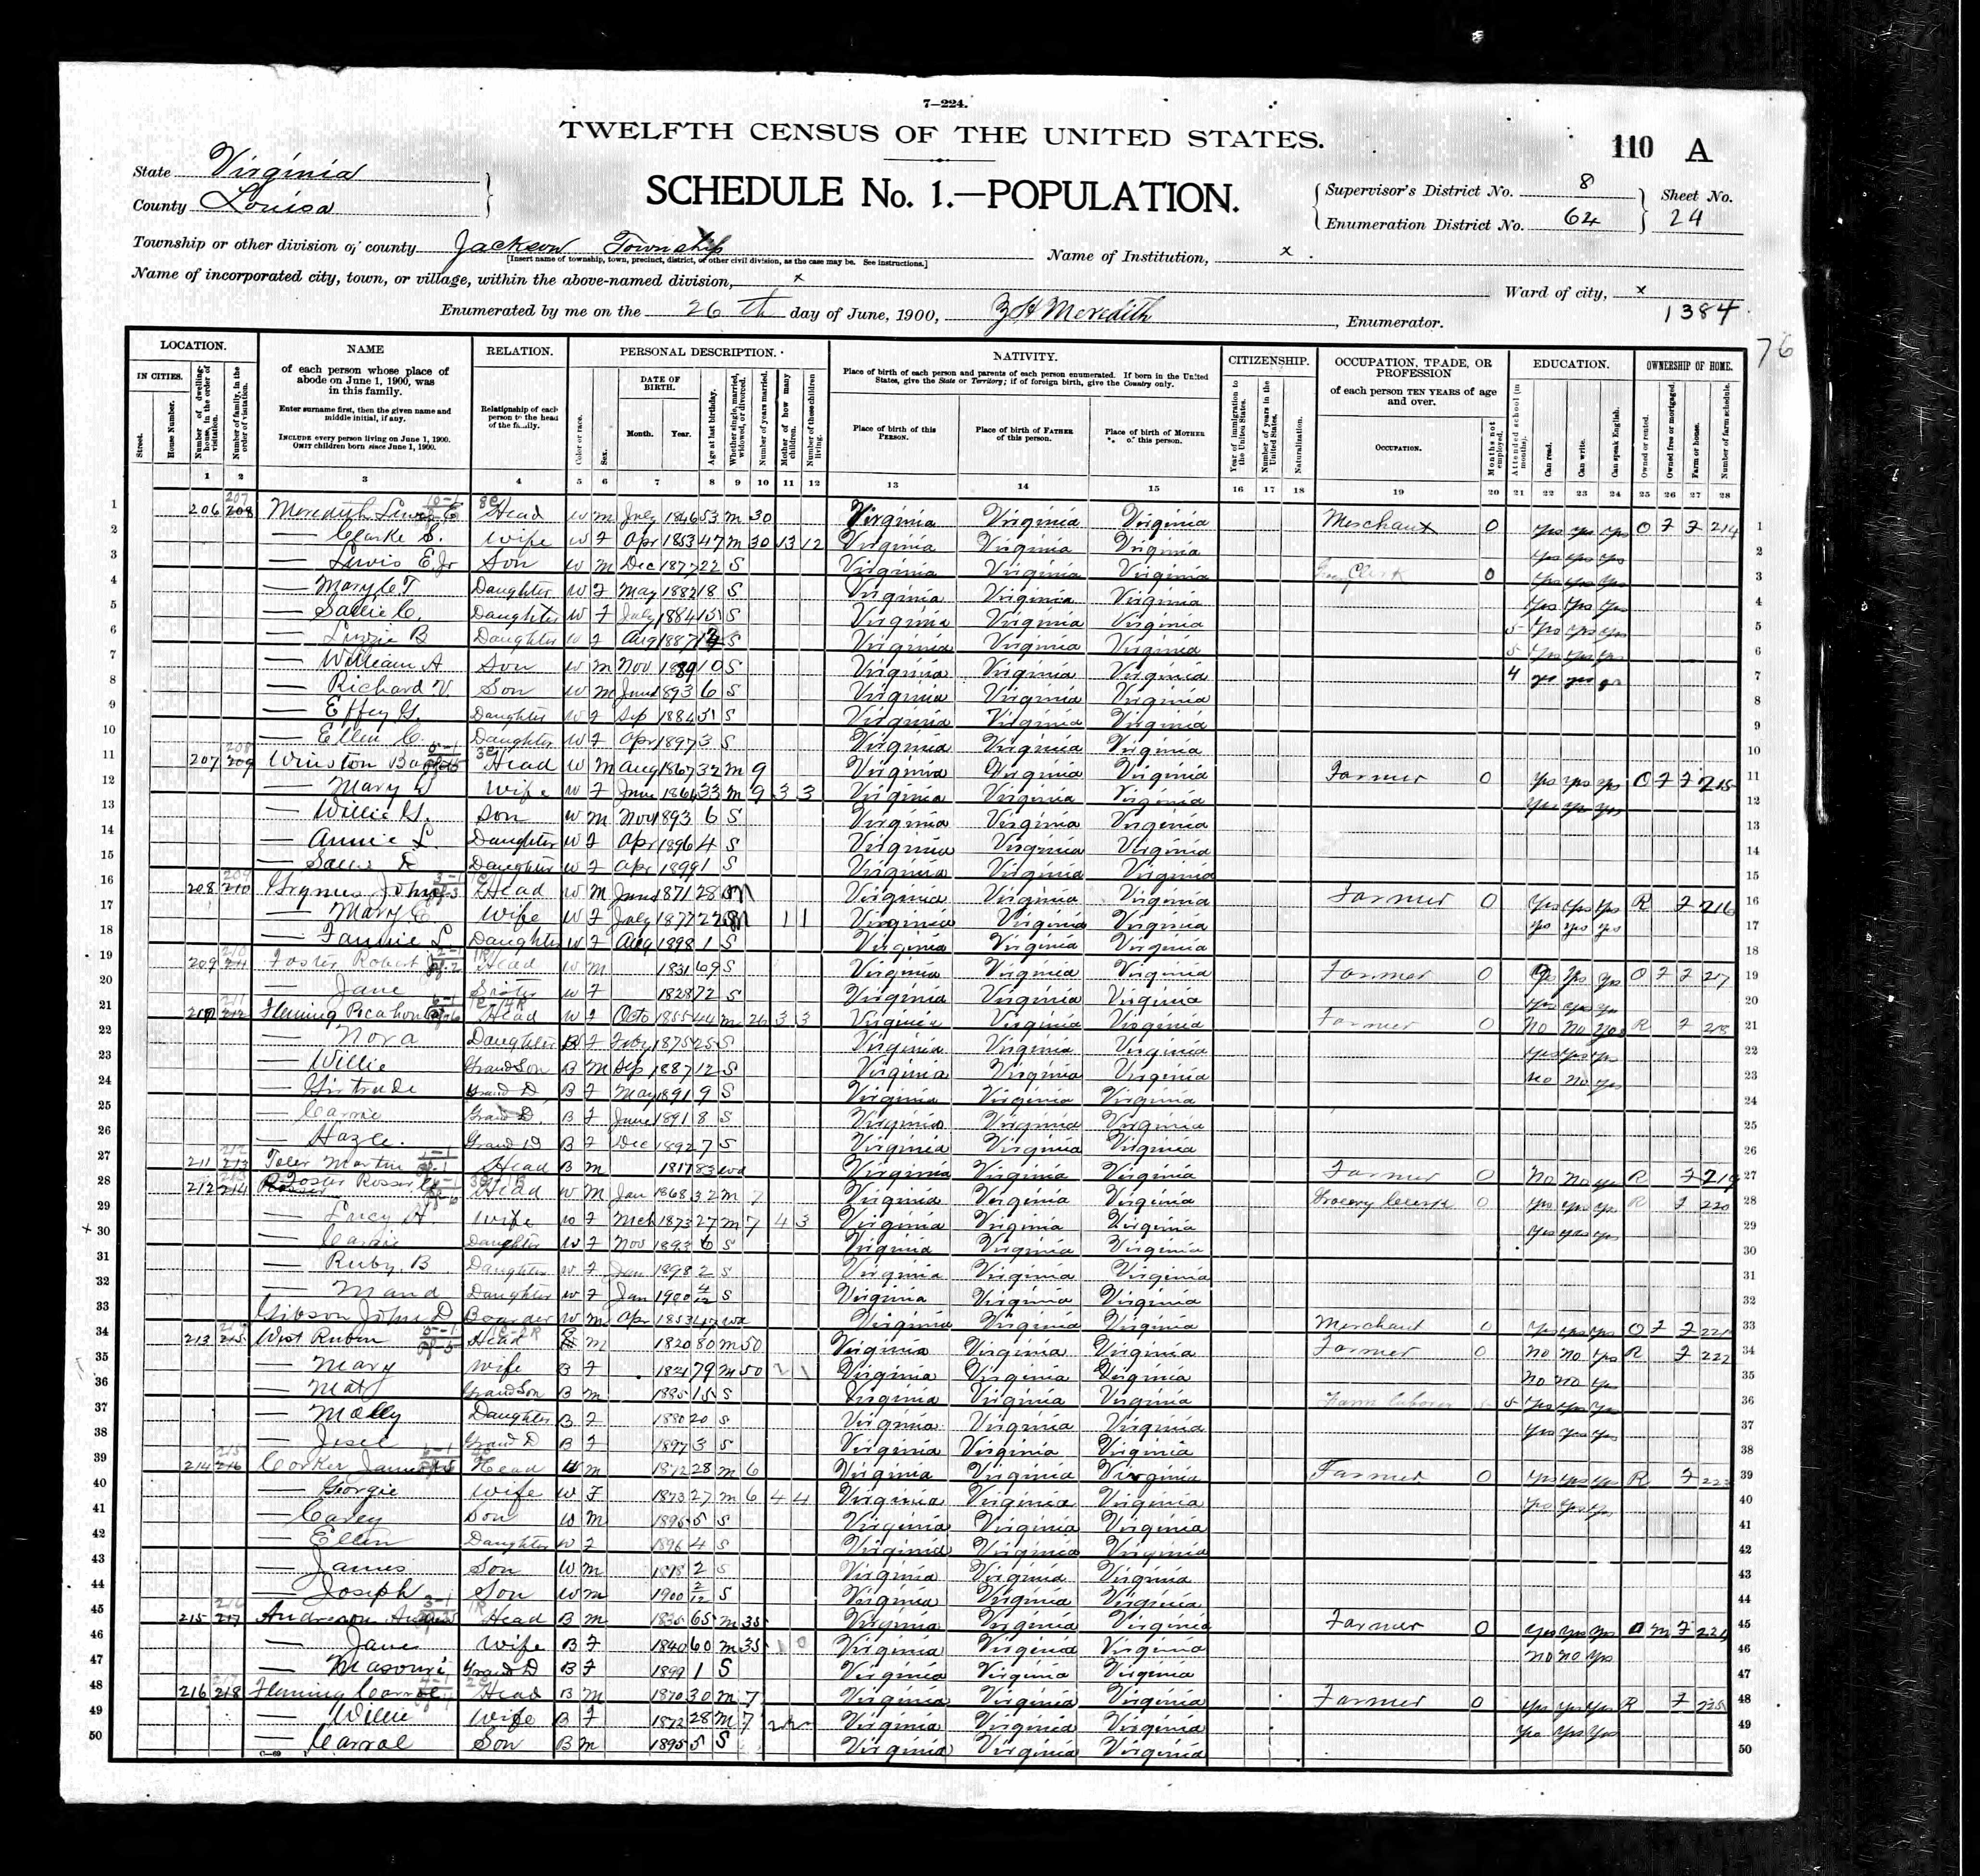 7—224.
TWELFTH CENSUS OF THE UNITED STATES.
110 A
State Virginia
County Louisa
SCHEDULE No. 1.—POPULATION.
Supervisor's District No. 8
Enumeration District No. 64
Sheet No. 24
Township or other division of county Jackson Township
[Insert name of township, town, precinct, district, or other civil division, as the case may be. See instructions.]
Name of Institution, x
Name of incorporated city, town, or village, within the above-named division, x
Ward of city, x
Enumerated by me on the 26th day of June, 1900, Z H Meredith, Enumerator.
1384
76
LOCATION. NAME RELATION. PERSONAL DESCRIPTION. NATIVITY. CITIZENSHIP. OCCUPATION, TRADE, OR PROFESSION EDUCATION. OWNERSHIP OF HOME.
IN CITIES. Street. House Number. Number of dwelling-house, in the order of visitation. Number of family, in the order of visitation.
of each person whose place of abode on June 1, 1900, was in this family.
Enter surname first, then the given name and middle initial, if any.
INCLUDE every person living on June 1, 1900. OMIT children born since June 1, 1900.
Relationship of each person to the head of the family.
Color or race. Sex. DATE OF BIRTH. Month. Year. Age at last birthday. Whether single, married, widowed, or divorced. Number of years married. Mother of how many children. Number of these children living.
Place of birth of each person and parents of each person enumerated. If born in the United States, give the State or Territory; if of foreign birth, give the Country only.
Place of birth of this PERSON. Place of birth of FATHER of this person. Place of birth of MOTHER of this person.
Year of immigration to the United States. Number of years in the United States. Naturalization.
of each person TEN YEARS of age and over.
OCCUPATION. Months not employed. Attended school (in months). Can read. Can write. Can speak English. Owned or rented. Owned free or mortgaged. Farm or house. Number of farm schedule.
1 2 3 4 5 6 7 8 9 10 11 12 13 14 15 16 17 18 19 20 21 22 23 24 25 26 27 28
1 206 208 Meredith Lewis E Head W M July 1846 53 M 30 Virginia Virginia Virginia Merchant 0 yes yes yes O F F 214 1
2 — Clarke S. Wife W F Apr 1853 47 M 30 13 12 Virginia Virginia Virginia yes yes yes 2
3 — Lewis E Jr Son W M Dec 1877 22 S Virginia Virginia Virginia Clerk 0 yes yes yes 3
4 — Mary C T Daughter W F May 1882 18 S Virginia Virginia Virginia yes yes yes 4
5 — Sallie C. Daughter W F July 1884 15 S Virginia Virginia Virginia 5 yes yes yes 5
6 — Lizzie B Daughter W F Aug 1887 S Virginia Virginia Virginia 5 yes yes yes 6
7 — William A Son W M Nov 1889 10 S Virginia Virginia Virginia 4 yes yes yes 7
8 — Richard V. Son W M June 1893 6 S Virginia Virginia Virginia 8
9 — Effey G. Daughter W F Sep 1884 5 S Virginia Virginia Virginia 9
10 — Ellen C. Daughter W F Apr 1897 3 S Virginia Virginia Virginia 10
11 207 209 Winston Head W M Aug 1867 32 M 9 Virginia Virginia Virginia Farmer 0 yes yes yes O F F 215 11
12 — Mary W Wife W F June 1866 33 M 9 3 3 Virginia Virginia Virginia yes yes yes 12
13 — Willie G. Son W M Nov 1893 6 S Virginia Virginia Virginia 13
14 — Annie L. Daughter W F Apr 1896 4 S Virginia Virginia Virginia 14
15 — Daughter W F Apr 1899 1 S Virginia Virginia Virginia 15
16 208 210 John Head W M June 1871 28 M Virginia Virginia Virginia Farmer 0 yes yes yes R F 216 16
17 — Mary E. Wife W F July 1877 22 M 1 1 Virginia Virginia Virginia yes yes yes 17
18 — Fannie L Daughter W F Aug 1898 1 S Virginia Virginia Virginia 18
19 209 211 Foster Robert Head W M 1831 69 S Virginia Virginia Virginia Farmer 0 yes yes yes O F F 217 19
20 — Jane Sister W F 1828 72 S Virginia Virginia Virginia yes yes yes 20
21 210 212 Fleming Pocahontas Head F Octo 1855 44 M 26 3 3 Virginia Virginia Virginia Farmer 0 No No yes R F 218 21
22 — Nora Daughter B F Feby 1875 25 S Virginia Virginia Virginia yes yes yes 22
23 — Willie Grand Son B M Sep 1887 12 S Virginia Virginia Virginia No No yes 23
24 — Girtrude Grand D. B F May 1891 9 S Virginia Virginia Virginia 24
25 — Carrie Grand D. B F June 1891 8 S Virginia Virginia Virginia 25
26 — Hazle. Grand D B F Dec 1892 7 S Virginia Virginia Virginia 26
27 211 213 Toler Martin Head B M 1817 83 Wd Virginia Virginia Virginia Farmer 0 No No yes R F 219 27
28 212 214 Foster Rosser Head W M Jan 1868 32 M 7 Virginia Virginia Virginia Grocery Clerk 0 yes yes yes R F 220 28
29 — Lucy A. Wife W F Mch 1873 27 M 7 4 3 Virginia Virginia Virginia yes yes yes 29
x 30 — Daughter W F Nov 1893 6 S Virginia Virginia Virginia 30
31 — Ruby B Daughter W F Jan 1898 2 S Virginia Virginia Virginia 31
32 — Maud Daughter W F Jan 1900 4/12 S Virginia Virginia Virginia 32
33 Gibson John D Boarder W M Apr 1853 47 Wd Virginia Virginia Virginia Merchant 0 yes yes yes O F F 221 33
34 213 215 West Rubin Head B M 1820 80 M 50 Virginia Virginia Virginia Farmer 0 No No yes R F 222 34
35 — Mary Wife B F 1821 79 M 50 2 1 Virginia Virginia Virginia No No yes 35
36 — Mat Grand Son B M 1885 15 S Virginia Virginia Virginia Farm laborer 5 yes yes yes 36
37 — Molly Daughter B F 1880 20 S Virginia Virginia Virginia yes yes yes 37
38 — Grand D B F 1897 3 S Virginia Virginia Virginia 38
39 214 216 Corker James Head W M 1872 28 M 6 Virginia Virginia Virginia Farmer 0 yes yes yes R F 223 39
40 — Georgie Wife W F 1873 27 M 6 4 4 Virginia Virginia Virginia yes yes yes 40
41 — Carey Son W M 1895 5 S Virginia Virginia Virginia 41
42 — Ellen Daughter W F 1896 4 S Virginia Virginia Virginia 42
43 — James Son W M 1898 2 S Virginia Virginia Virginia 43
44 — Joseph Son W M 1900 2/12 S Virginia Virginia Virginia 44
45 215 217 Anderson Head B M 1835 65 M 35 Virginia Virginia Virginia Farmer 0 yes yes yes O M F 224 45
46 — Jane Wife B F 1840 60 M 35 1 0 Virginia Virginia Virginia No No yes 46
47 — Grand D B F 1899 1 S Virginia Virginia Virginia 47
48 216 218 Fleming Head B M 1870 30 M 7 Virginia Virginia Virginia Farmer 0 yes yes yes R F 225 48
49 — Willie Wife B F 1872 28 M 7 2 2 Virginia Virginia Virginia yes yes yes 49
50 — Carral Son B M 1895 5 S Virginia Virginia Virginia 50